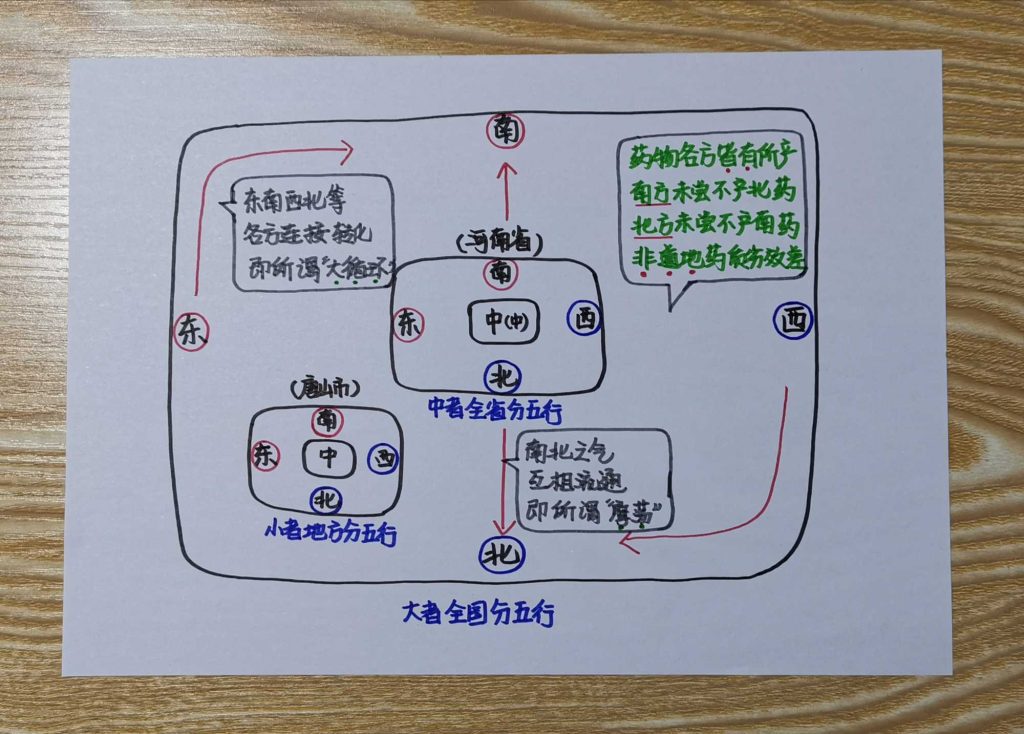 南
东南西北等
各方连接转化
即所谓“大循环”
药物各方皆有所产
南方未尝不产北药
北方未尝不产南药
非道地药低劣效差
(河南省)
南
东
中(中)
西
北
中者全省分五行
东
西
(唐山市)
南
东
中
西
北
小者地方分五行
南北之气
互相流通
即所谓“摩荡”
北
大者全国分五行